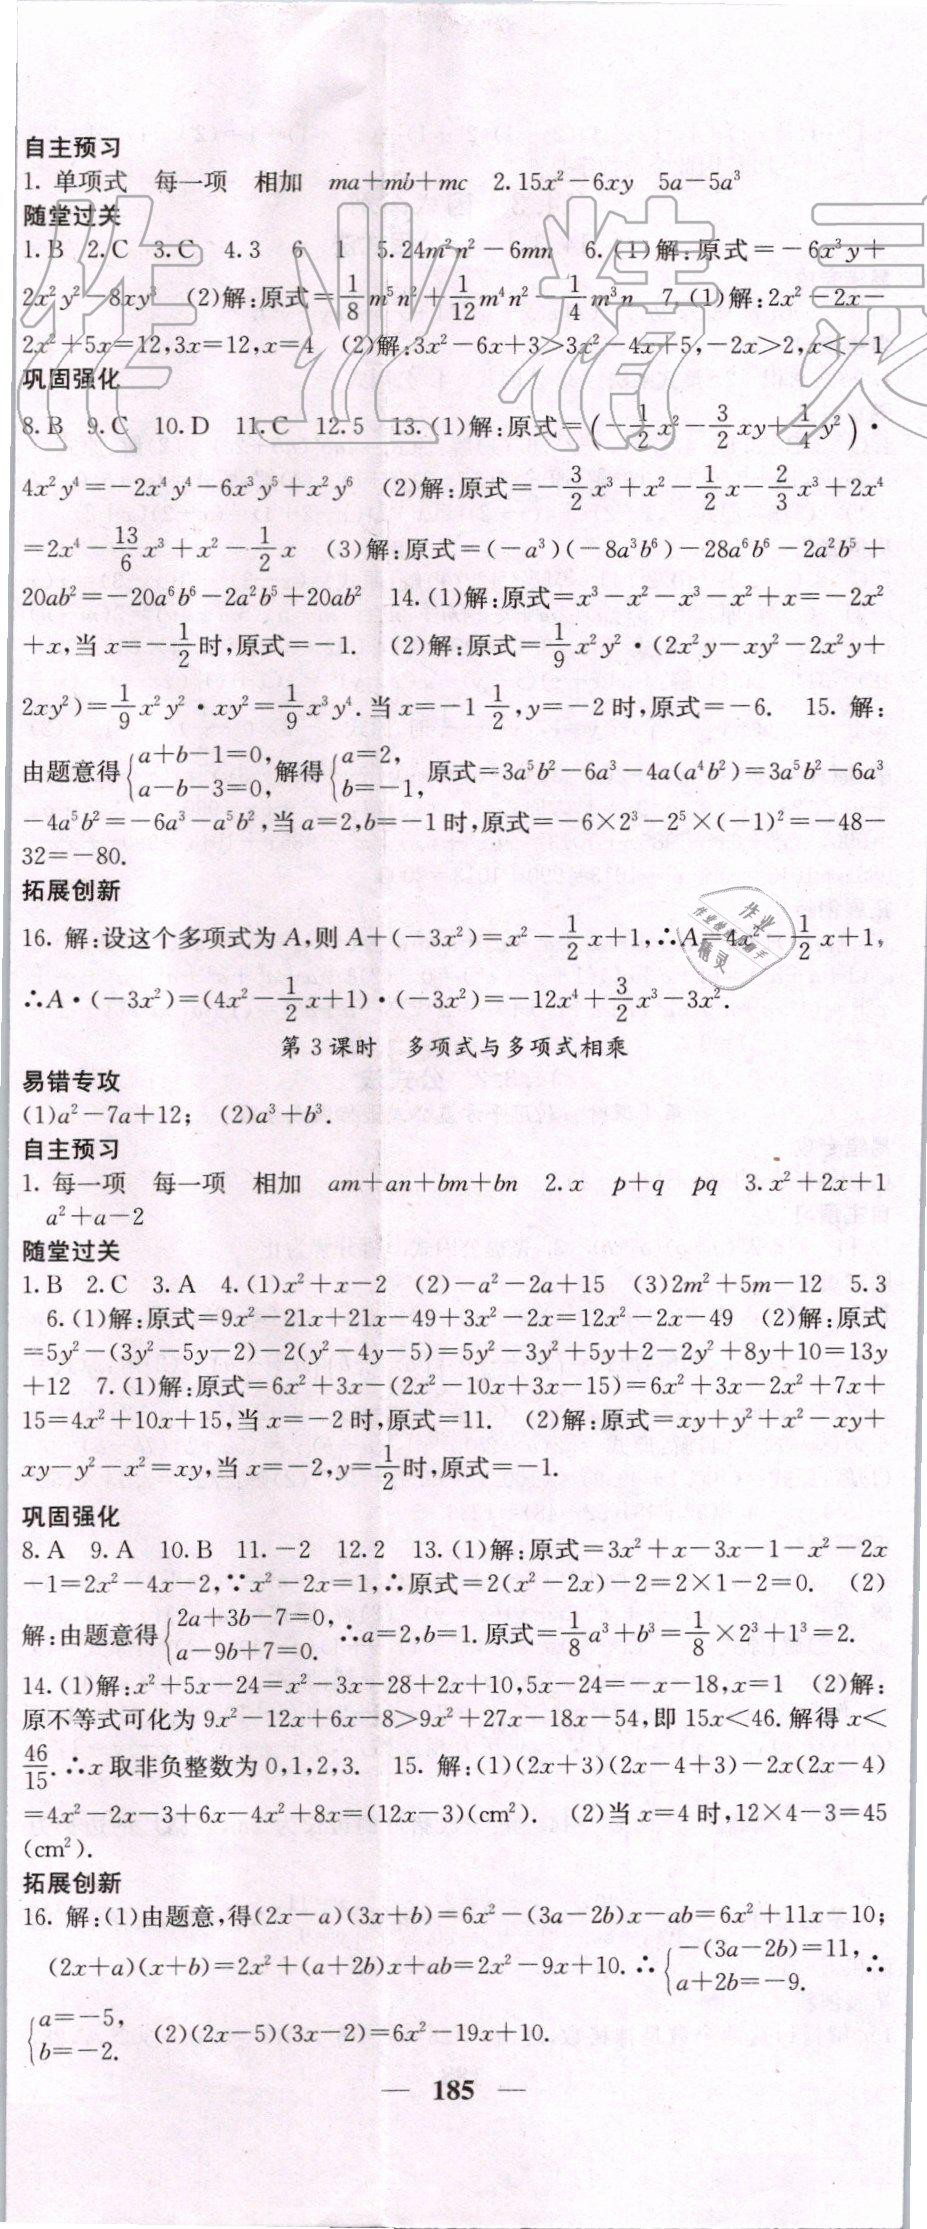 自主预习
1. 单项式　每一项　相加　ma+mb+mc　2. 15x²−6xy　5a−5a³
随堂过关
1. B　2. C　3. C　4. 3　6　1　5. 24m²n²−6mn　6. (1)解:原式=−6x³y+
2x²y²−8xy³　(2)解:原式=1/8 m⁵n²+1/12 m⁴n²−1/4 m³n　7. (1)解:2x²−2x−
2x²+5x=12,3x=12,x=4　(2)解:3x²−6x+3>3x²−4x+5,−2x>2,x<−1
巩固强化
8. B　9. C　10. D　11. C　12. 5　13. (1)解:原式=(−1/2 x²−3/2 xy+1/4 y²)·
4x²y⁴=−2x⁴y⁴−6x³y⁵+x²y⁶　(2)解:原式=−3/2 x³+x²−1/2 x−2/3 x³+2x⁴
=2x⁴−13/6 x³+x²−1/2 x　(3)解:原式=(−a³)(−8a³b⁶)−28a⁶b⁶−2a²b⁵+
20ab²=−20a⁶b⁶−2a²b⁵+20ab²　14. (1)解:原式=x³−x²−x³−x²+x=−2x²
+x,当 x=−1/2时,原式=−1.　(2)解:原式=1/9 x²y²·(2x²y−xy²−2x²y+
2xy²)=1/9 x²y²·xy²=1/9 x³y⁴. 当 x=−1 1/2,y=−2 时,原式=−6.　15. 解:
由题意得{a+b−1=0, a−b−3=0,解得{a=2, b=−1,原式=3a⁵b²−6a³−4a(a⁴b²)=3a⁵b²−6a³
−4a⁵b²=−6a³−a⁵b²,当 a=2,b=−1 时,原式=−6×2³−2⁵×(−1)²=−48−
32=−80.
拓展创新
16. 解:设这个多项式为 A,则 A+(−3x²)=x²−1/2 x+1,∴A=4x²−1/2 x+1,
∴A·(−3x²)=(4x²−1/2 x+1)·(−3x²)=−12x⁴+3/2 x³−3x².
第 3 课时　多项式与多项式相乘
易错专攻
(1)a²−7a+12;　(2)a³+b³.
自主预习
1. 每一项　每一项　相加　am+an+bm+bn　2. x　p+q　pq　3. x²+2x+1
a²+a−2
随堂过关
1. B　2. C　3. A　4. (1)x²+x−2　(2)−a²−2a+15　(3)2m²+5m−12　5. 3
6. (1)解:原式=9x²−21x+21x−49+3x²−2x=12x²−2x−49　(2)解:原式
=5y²−(3y²−5y−2)−2(y²−4y−5)=5y²−3y²+5y+2−2y²+8y+10=13y
+12　7. (1)解:原式=6x²+3x−(2x²−10x+3x−15)=6x²+3x−2x²+7x+
15=4x²+10x+15,当 x=−2 时,原式=11.　(2)解:原式=xy+y²+x²−xy+
xy−y²−x²=xy,当 x=−2,y=1/2时,原式=−1.
巩固强化
8. A　9. A　10. B　11. −2　12. 2　13. (1)解:原式=3x²+x−3x−1−x²−2x
−1=2x²−4x−2,∵x²−2x=1,∴原式=2(x²−2x)−2=2×1−2=0.　(2)
解:由题意得{2a+3b−7=0, a−9b+7=0. ∴a=2,b=1. 原式=1/8 a³+b³=1/8×2³+1³=2.
14. (1)解:x²+5x−24=x²−3x−28+2x+10,5x−24=−x−18,x=1　(2)解:
原不等式可化为 9x²−12x+6x−8>9x²+27x−18x−54,即 15x<46. 解得 x<
46/15. ∴x 取非负整数为 0,1,2,3.　15. 解:(1)(2x+3)(2x−4+3)−2x(2x−4)
=4x²−2x−3+6x−4x²+8x=(12x−3)(cm²).　(2)当 x=4 时,12×4−3=45
(cm²).
拓展创新
16. 解:(1)由题意,得(2x−a)(3x+b)=6x²−(3a−2b)x−ab=6x²+11x−10;
(2x+a)(x+b)=2x²+(a+2b)x+ab=2x²−9x+10. ∴{−(3a−2b)=11, a+2b=−9. ∴
{a=−5, b=−2.　(2)(2x−5)(3x−2)=6x²−19x+10.
— 185 —